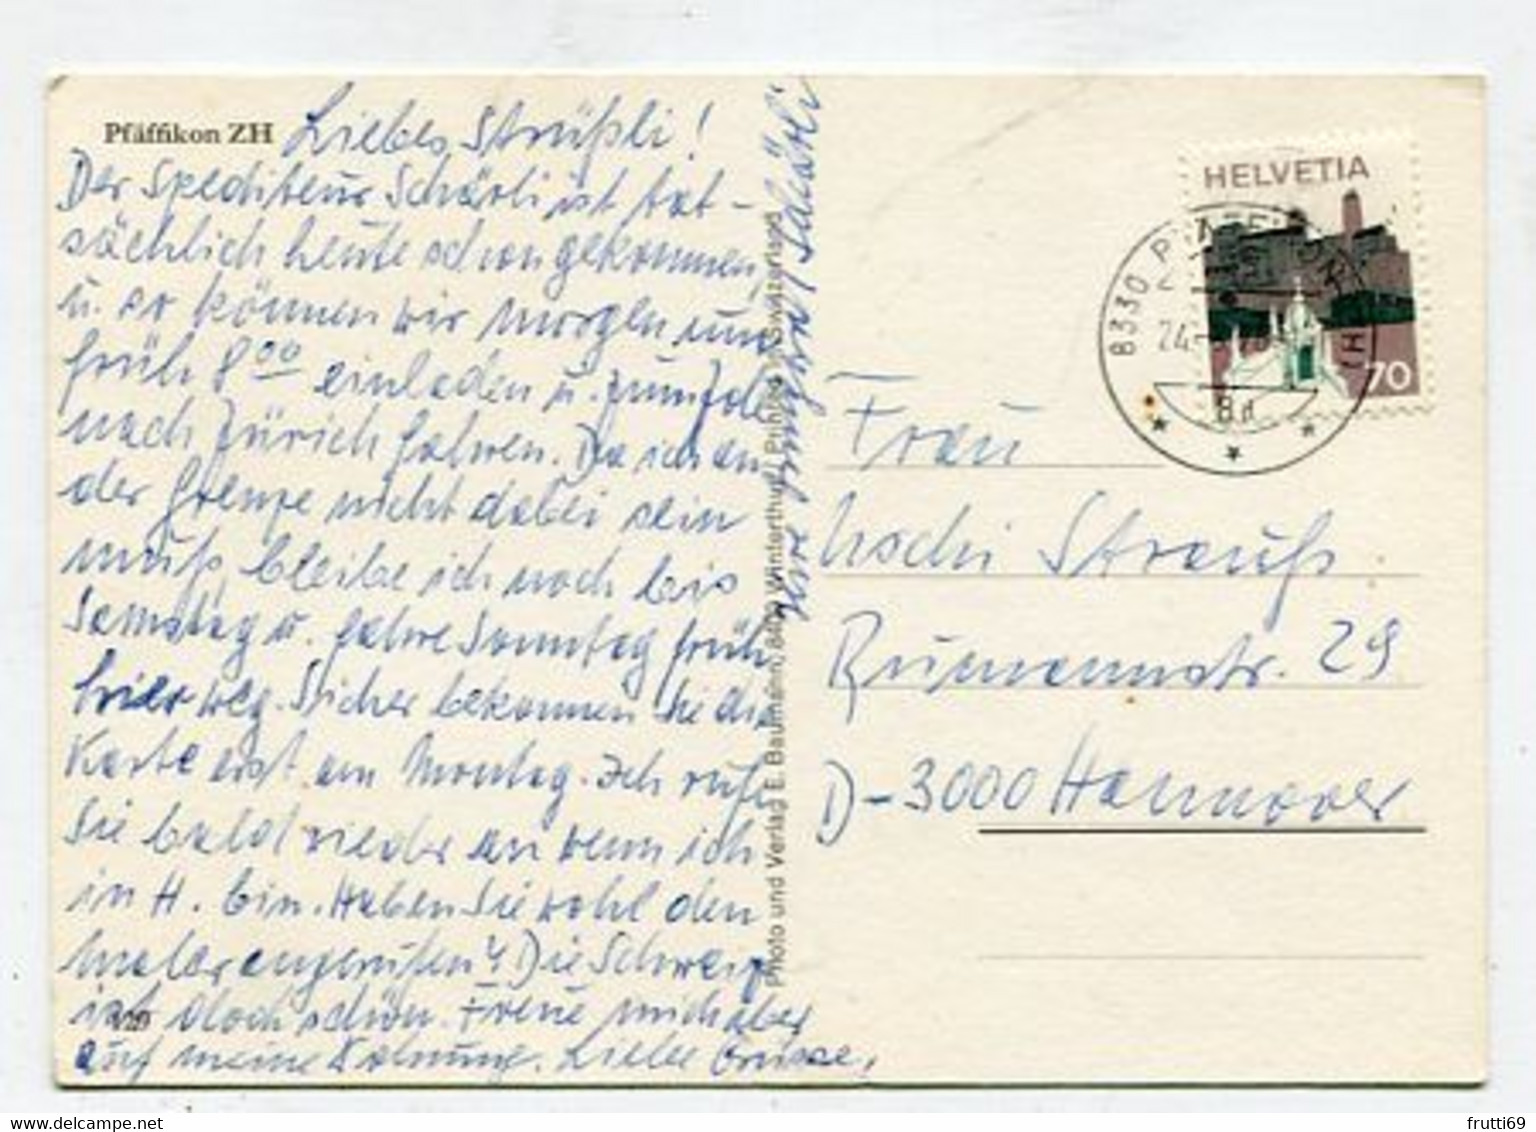 Pfäffikon ZH
Liebes Sträußli!
Der Spediteur Schärli ist tat-
sächlich heute schon gekommen,
u. so können wir morgen um
früh 8⁰⁰ einladen u. zum Zoll
nach Zürich fahren. Da ich an
der Grenze nicht dabei sein
muß, bleibe ich noch bis
Samstag u. fahre Sonntag früh
hier weg. Sicher bekommen Sie die
Karte erst am Montag. Ich rufe
Sie bald wieder an wenn ich
in H. bin. Haben Sie wohl den
Maler angerufen? Die Schweiz
ist doch schön. Freue mich aber
auf meine Wohnung. Liebe Grüsse,
Ihre
Photo und Verlag E. Baumann, 8400 Winterthur / Printed in Switzerland
HELVETIA
70
8330 PFÄFFIKON
24.
8d
(ZH)
Frau
Uschi Strauß
Rumannstr. 29
D-3000 Hannover
delcampe.net
frutti69